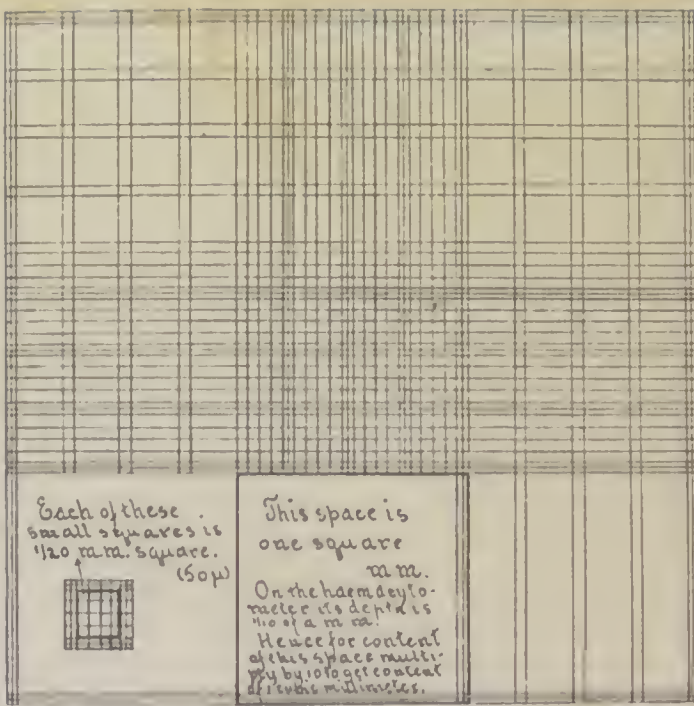 Each of these
small squares is
1/20 m.m. square.
(50µ)
This space is
one square
m m.
On the haemacyto-
meter its depth is
1/10 of a m m.
Hence for content
of this space multi-
ply by 10 to get content
of 1 cubic millimeter.